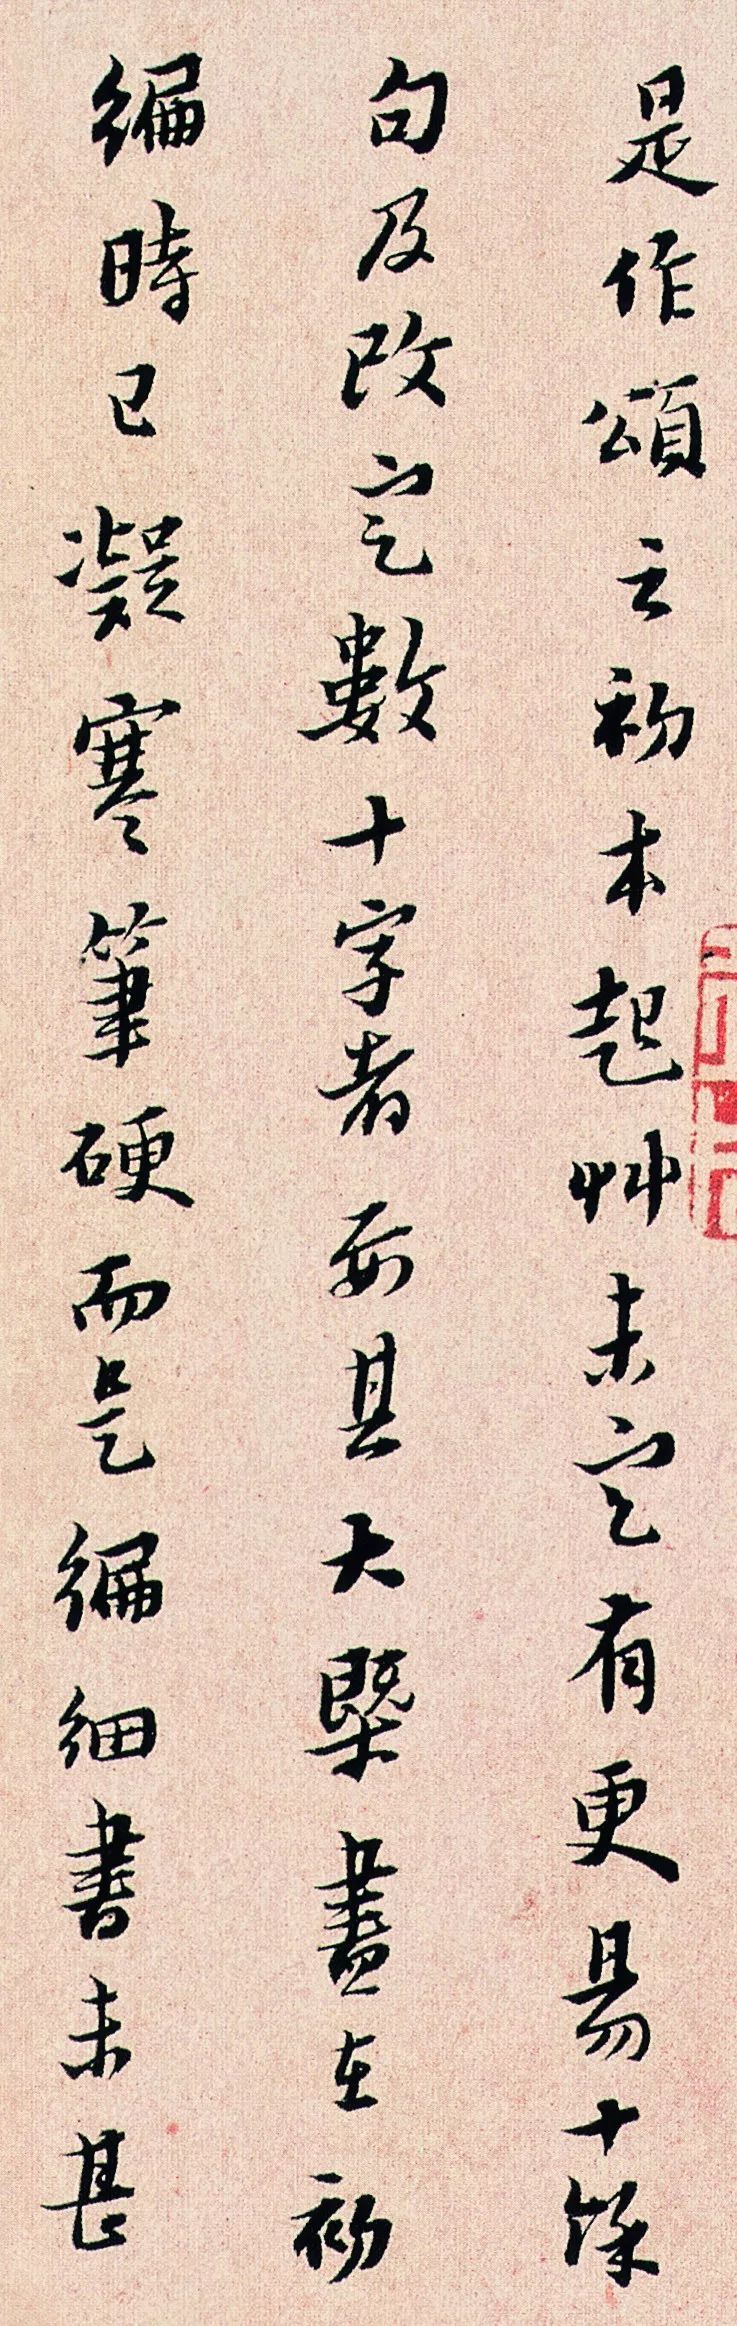 是作頌之初本起艸未定有更易十餘
句及改定數十字者而其大槩盡在初
編時已凝寒筆硬而是編細書未甚